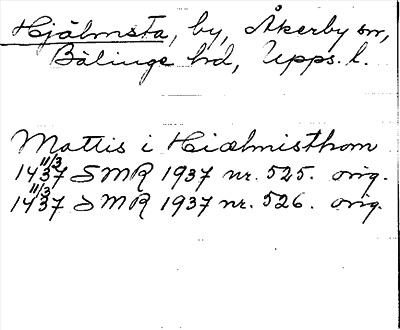 Hjälmsta, by, Åkerby sn,
Bälinge hd, Upps. l.
Mattis i Hiælmisthom
14 11/3 37 SMR 1937 nr. 525. orig.
14 11/3 37 SMR 1937 nr. 526. orig.